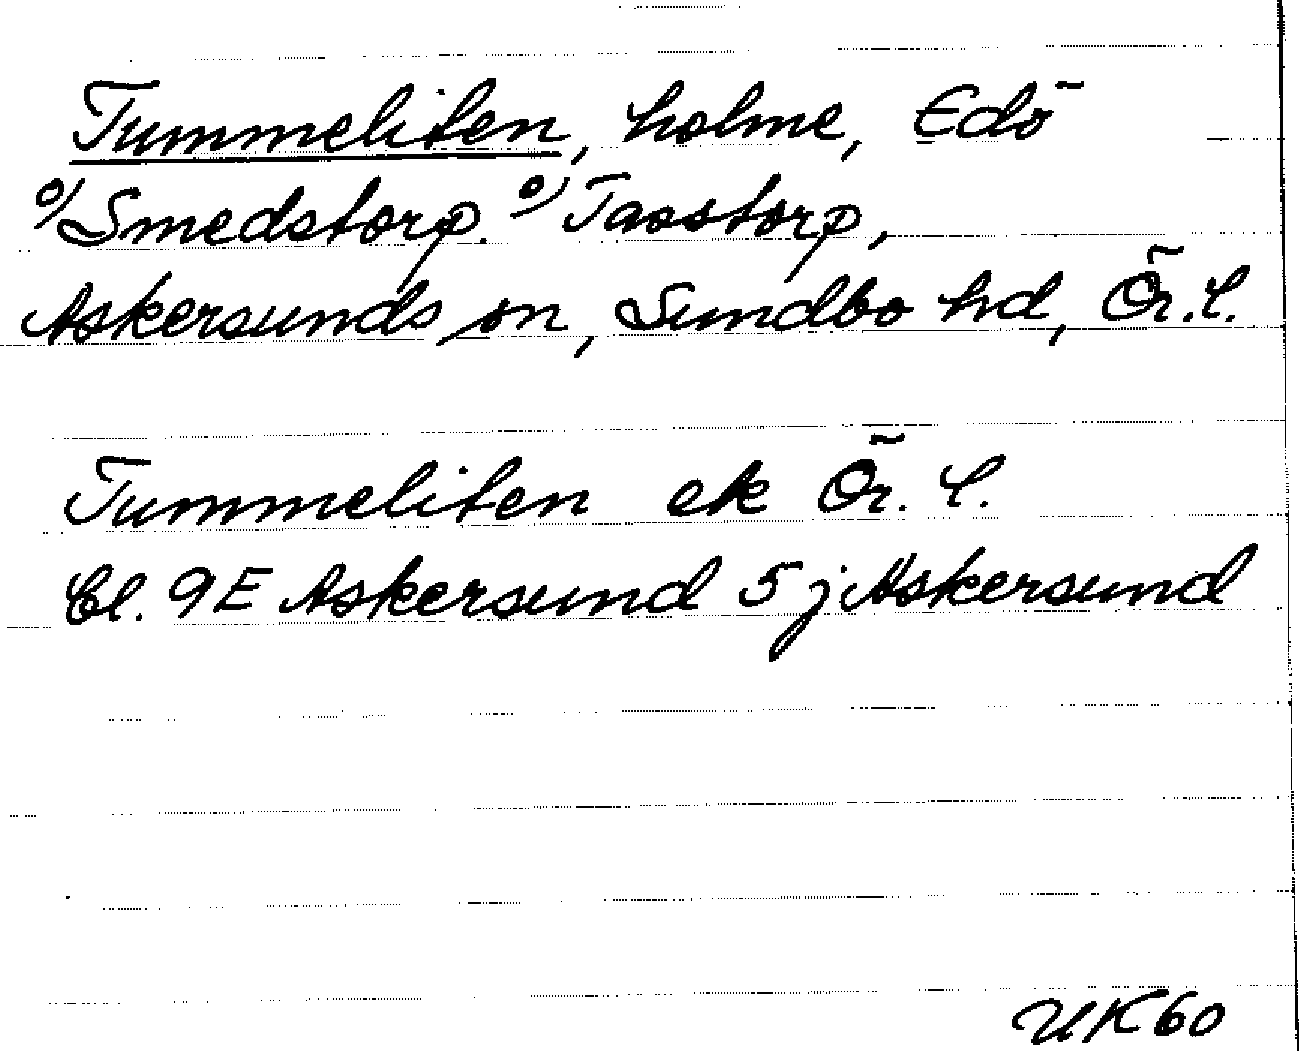 Tummeliten, holme, Edö
o/ Smedstorp o/ Tasstorp,
Askersunds sn, Sundbo hd, Ör. l.
Tummeliten ek Ör. l.
Bl. 9E Askersund 5 j Askersund
UK60